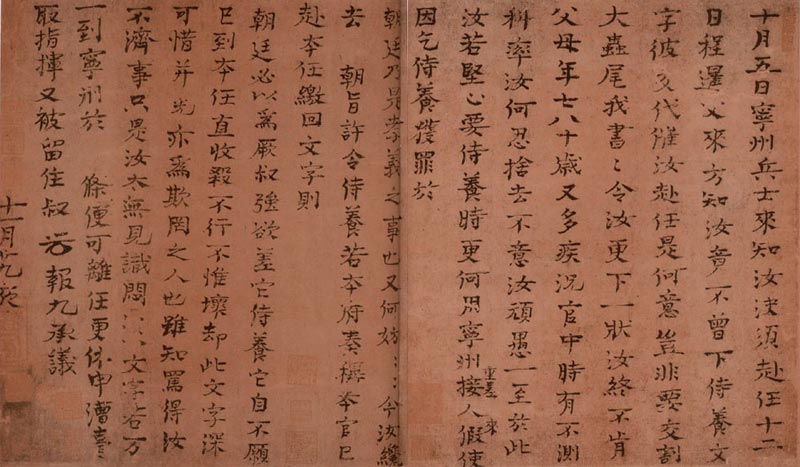 十月五日寧州兵士來知汝決須赴任十二
日程暹又來方知汝竟不曾下侍養文
字彼交代催汝赴任是何意豈非要交割
大蟲尾我書〻令汝更下一狀汝終不肯
父母年七八十歲又多疾況官中時有不測
科率汝何忍捨去不意汝頑愚一至於此
汝若堅心要侍養時更何用寧州接人重差來假使
因乞侍養獲罪於
朝廷乃是孝義之事也又何妨〻〻今汝纔
去 朝旨許令侍養若本府奏稱本官已
赴本任繳回文字則
朝廷必以為厥叔強欲差它侍養它自不願
已到本任直收殺不行不惟壞却此文字深
可惜并光亦為欺罔之人也雖知罵得汝
不濟事只是汝太無見識悶〻〻文字若万
一到寧州於 條便可離任更休申漕臺
取指揮又被留住叔 光 報九承議
十一月